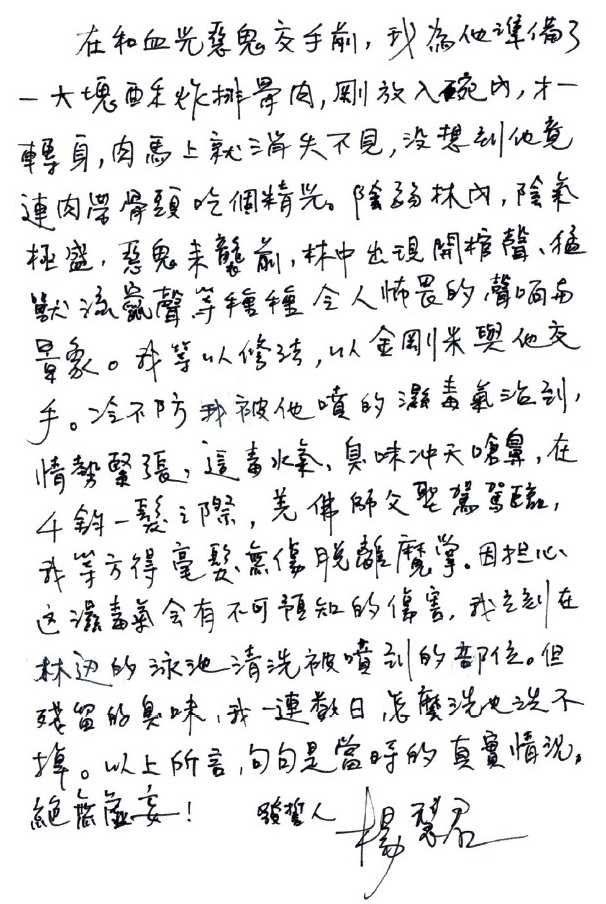 在和血光惡鬼交手前，我為他準備了
一大塊酥炸排骨肉，剛放入碗內，才一
轉身，肉馬上就消失不見，没想到他竟
連肉帶骨頭吃個精光。陰弱林內，陰氣
極盛，惡鬼来襲前，林中出現開棺聲、猛
獸流竄聲等種種令人怖畏的聲响与
景象。我等以修法，以金剛米與他交
手。冷不防我被他噴的濕毒氣沾到，
情勢緊張，這毒水氣，臭味冲天嗆鼻，在
千鈞一髮之際，羌佛師父聖駕駕臨，
我等方得毫髮無傷脱離魔掌。因担心
这濕毒氣会有不可預知的傷害，我立刻在
林边的泳池清洗被噴到的部位。但
殘留的臭味，我一連數日，怎麼洗也洗不
掉。以上所言，句句是當時的真實情況，
絕無虛妄！ 發誓人 楊慧君